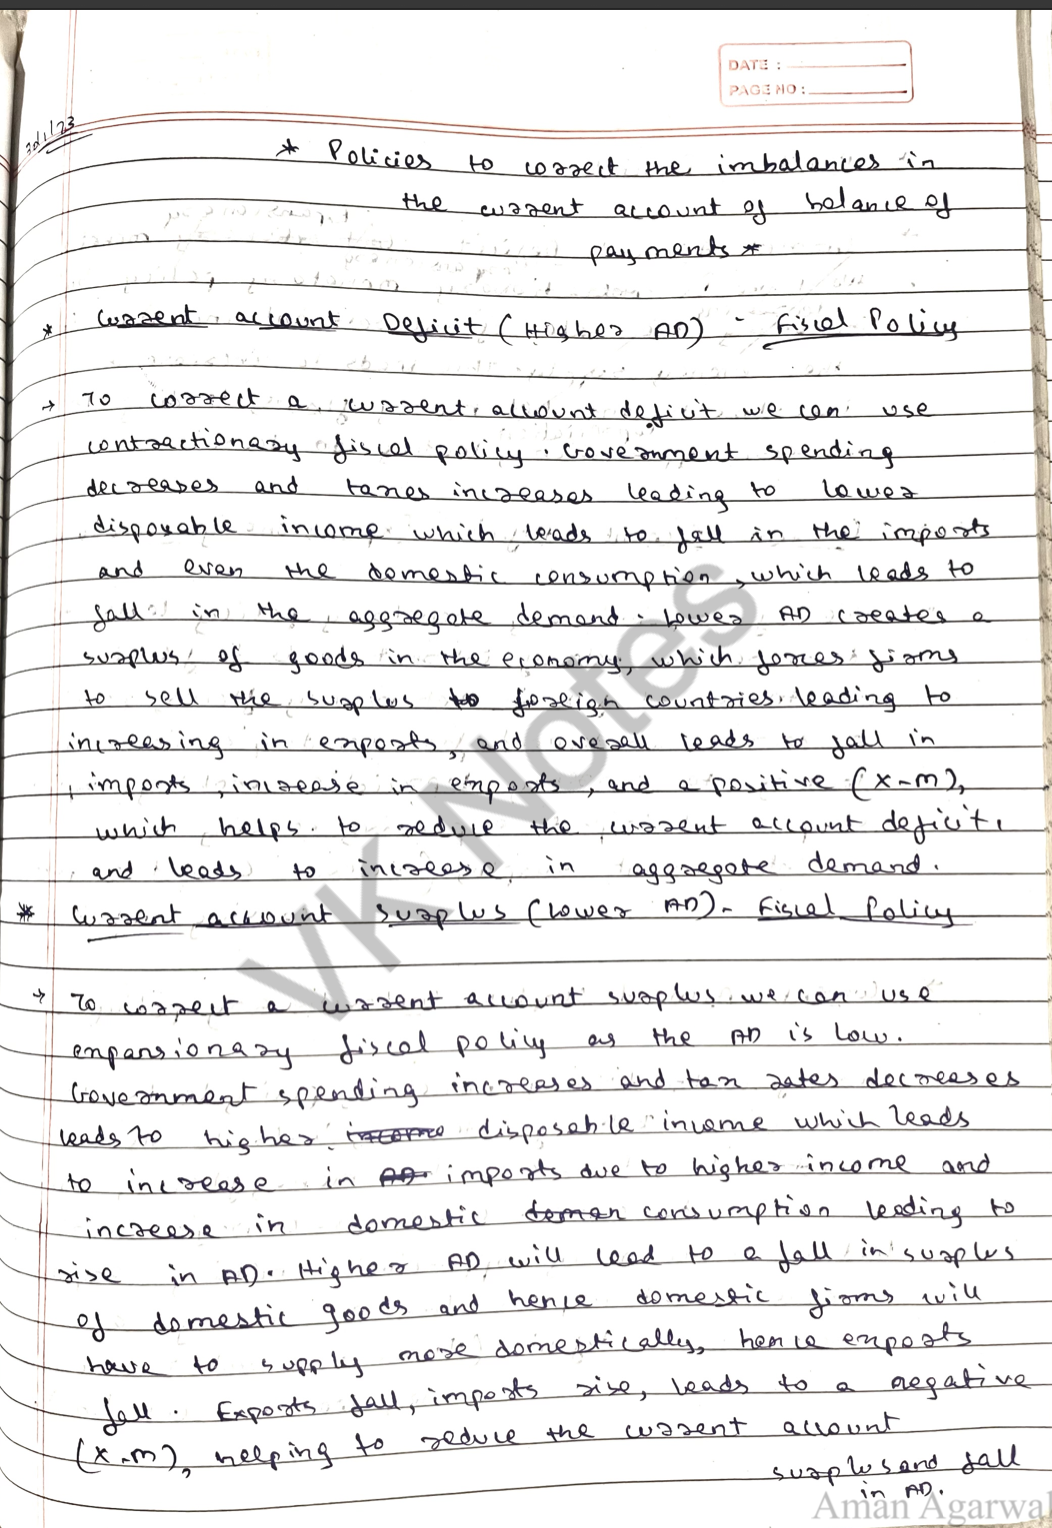 DATE :
PAGE NO :
30/1/23
* Policies to correct the imbalances in
the current account of balance of
payments *
* Current account Deficit (Higher AD) - Fiscal Policy
→ To correct a current account deficit we can use
contractionary fiscal policy. Government spending
decreases and taxes increases leading to lower
disposable income which leads to fall in the imports
and even the domestic consumption, which leads to
fall in the aggregate demand. Lower AD creates a
surplus of goods in the economy, which forces firms
to sell the surplus to foreign countries leading to
increasing in exports, and overall leads to fall in
imports, increase in exports, and a positive (X-m),
which helps to reduce the current account deficit,
and leads to increase in aggregate demand.
* Current account surplus (Lower AD) - Fiscal Policy
→ To correct a current account surplus we can use
expansionary fiscal policy as the AD is low.
Government spending increases and tax rates decreases
leads to higher income disposable income which leads
to increase in AD imports due to higher income and
increase in domestic consumption leading to
rise in AD. Higher AD will lead to a fall in surplus
of domestic goods and hence domestic firms will
have to supply more domestically, hence exports
fall. Exports fall, imports rise, leads to a negative
(X-m), helping to reduce the current account
surplus and fall
in AD.
VK Notes
Aman Agarwal